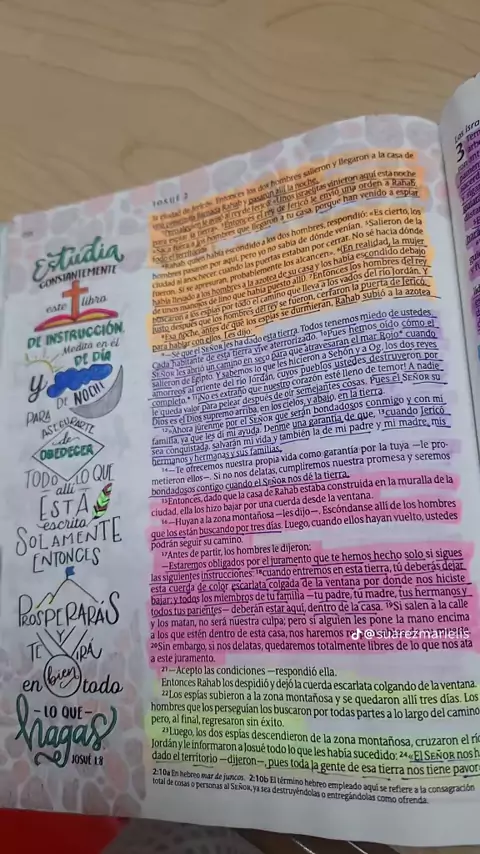 Estudia
CONSTANTEMENTE
este libro
DE INSTRUCCIÓN.
Medita en él
DE DÍA
y
DE NOCHE
PARA
ASEGURARTE
de
OBEDECER
TODO LO QUE
allí
ESTÁ
escrito.
SOLAMENTE
ENTONCES
PROSPERARÁS
Y
TE IRÁ
en bien todo
LO QUE
hagas
JOSUÉ 1:8
JOSUÉ 2
la ciudad de Jericó. Entonces los dos hombres salieron y llegaron a la casa de
llamada Rahab y pasaron allí la noche.
israelitas vinieron aquí esta noche
para espiar la tierra». ³Entonces el rey de Jericó le envió una orden a Rahab:
«Saca a los hombres que llegaron a tu casa, porque han venido a espiar
todo el territorio».
⁴Rahab, quien había escondido a los dos hombres, respondió: «Es cierto, los
hombres pasaron por aquí, pero yo no sabía de dónde venían. ⁵Salieron de la
ciudad al anochecer, cuando las puertas estaban por cerrar. No sé hacia dónde
fueron. Si se apresuran, probablemente los alcancen». ⁶(En realidad, la mujer
había llevado a los hombres a la azotea de su casa y los había escondido debajo
de unos manojos de lino que había puesto allí). ⁷Entonces los hombres del rey
buscaron a los espías por todo el camino que lleva a los vados del río Jordán. Y
justo después que los hombres del rey se fueron, cerraron la puerta de Jericó.
⁸Esa noche, antes de que los espías se durmieran, Rahab subió a la azotea
para hablar con ellos. Les dijo:
⁹—Sé que el SEÑOR les ha dado esta tierra. Todos tenemos miedo de ustedes.
Cada habitante de esta tierra vive aterrorizado. ¹⁰Pues hemos oído cómo el
SEÑOR les abrió un camino en seco para que atravesaran el mar Rojo* cuando
salieron de Egipto. Y sabemos lo que les hicieron a Sehón y a Og, los dos reyes
amorreos al oriente del río Jordán, cuyos pueblos ustedes destruyeron por
completo.* ¹¹¡No es extraño que nuestro corazón esté lleno de temor! A nadie
le queda valor para pelear después de oír semejantes cosas. Pues el SEÑOR su
Dios es el Dios supremo arriba, en los cielos, y abajo, en la tierra.
¹²»Ahora júrenme por el SEÑOR que serán bondadosos conmigo y con mi
familia, ya que les di mi ayuda. Denme una garantía de que, ¹³cuando Jericó
sea conquistada, salvarán mi vida y también la de mi padre y mi madre, mis
hermanos y hermanas y sus familias.
¹⁴—Te ofrecemos nuestra propia vida como garantía por la tuya —le pro-
metieron ellos—. Si no nos delatas, cumpliremos nuestra promesa y seremos
bondadosos contigo cuando el SEÑOR nos dé la tierra.
¹⁵Entonces, dado que la casa de Rahab estaba construida en la muralla de la
ciudad, ella los hizo bajar por una cuerda desde la ventana.
¹⁶—Huyan a la zona montañosa —les dijo—. Escóndanse allí de los hombres
que los están buscando por tres días. Luego, cuando ellos hayan vuelto, ustedes
podrán seguir su camino.
¹⁷Antes de partir, los hombres le dijeron:
—Estaremos obligados por el juramento que te hemos hecho solo si sigues
las siguientes instrucciones: ¹⁸cuando entremos en esta tierra, tú deberás dejar
esta cuerda de color escarlata colgada de la ventana por donde nos hiciste
bajar; y todos los miembros de tu familia —tu padre, tu madre, tus hermanos y
todos tus parientes— deberán estar aquí, dentro de la casa. ¹⁹Si salen a la calle
y los matan, no será nuestra culpa; pero si alguien les pone la mano encima
a los que estén dentro de esta casa, nos haremos
²⁰Sin embargo, si nos delatas, quedaremos totalmente libres de lo que nos ata
a este juramento.
²¹—Acepto las condiciones —respondió ella.
Entonces Rahab los despidió y dejó la cuerda escarlata colgando de la ventana.
²²Los espías subieron a la zona montañosa y se quedaron allí tres días. Los
hombres que los perseguían los buscaron por todas partes a lo largo del camino
pero, al final, regresaron sin éxito.
²³Luego, los dos espías descendieron de la zona montañosa, cruzaron el río
Jordán y le informaron a Josué todo lo que les había sucedido: ²⁴«El SEÑOR nos h
dado el territorio —dijeron—, pues toda la gente de esa tierra nos tiene pavor
2:10a En hebreo mar de juncos. 2:10b El término hebreo empleado aquí se refiere a la consagración
total de cosas o personas al SEÑOR, ya sea destruyéndolas o entregándolas como ofrenda.
@suarezmarielis
3